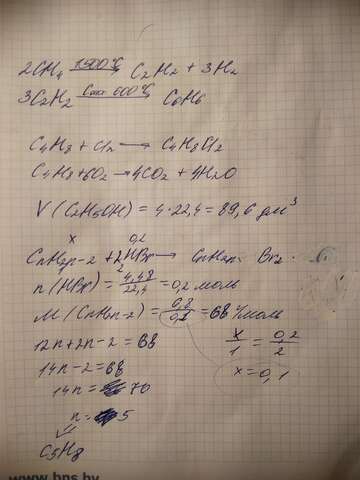 2CH₄ 1500°C → C₂H₂ + 3H₂
3C₂H₂ Cакт 600°C → C₆H₆
C₄H₈ + Cl₂ → C₄H₈Cl₂
C₄H₈ + 6O₂ → 4CO₂ + 4H₂O
V(C₂H₅OH) = 4·22,4 = 89,6 дм³
x 0,2
CnH2n-2 + 2HBr → CnH2n Br₂.
2
n(HBr) = 4,48/22,4 = 0,2 моль
M(CnH2n-2) = /0,1 = 68 г/моль
12n+2n-2 = 68 x/1 = 0,2/2
14n-2 = 68 x = 0,1
14n = 70
n = 5
C₅H₈
www.bns.by